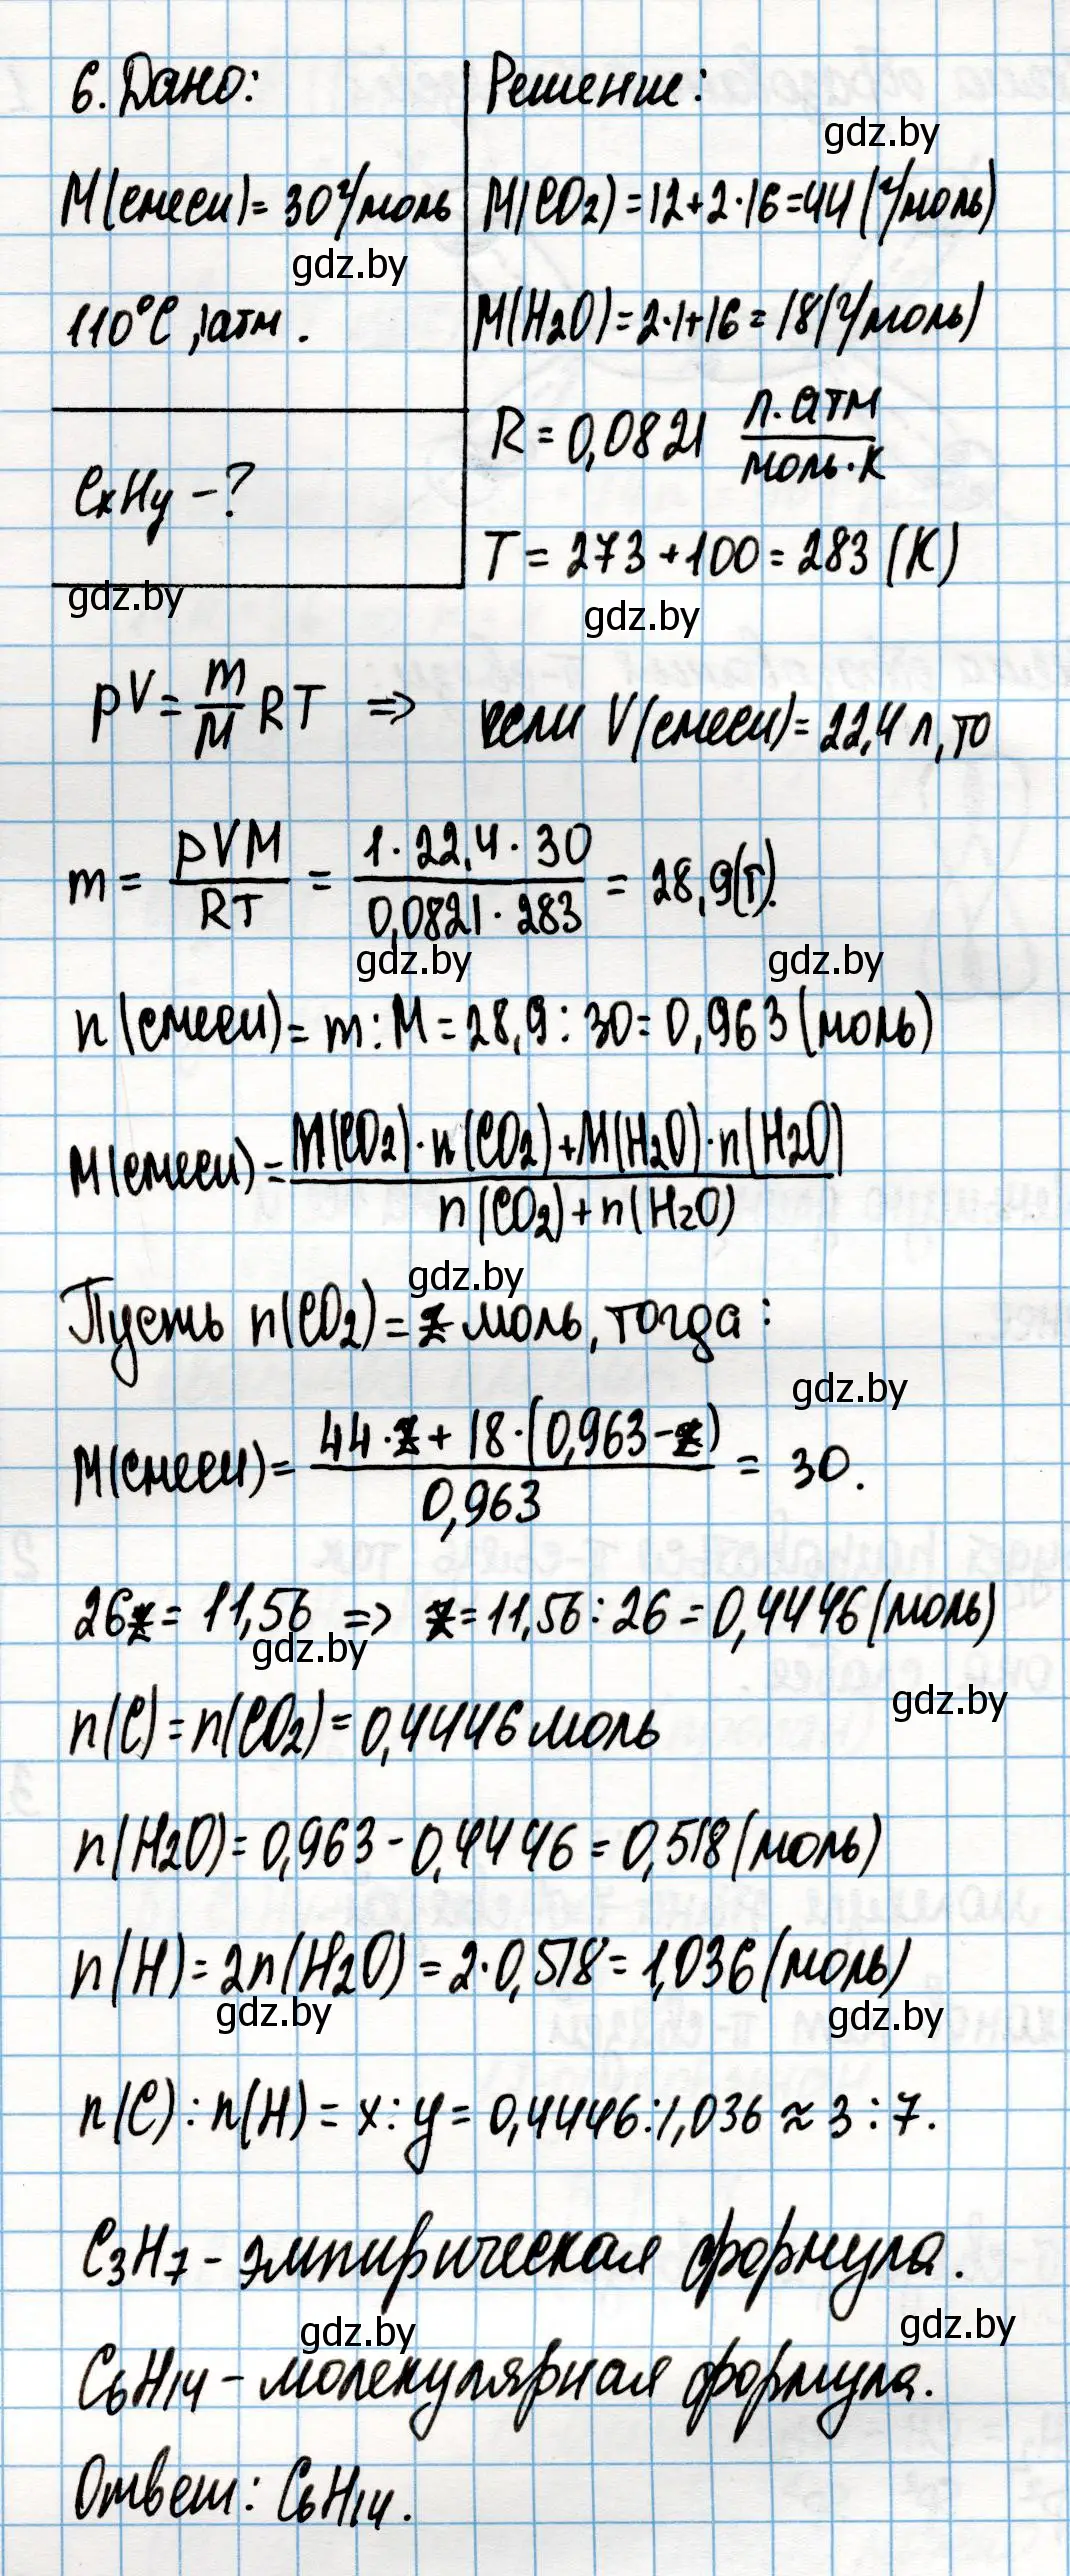 6. Дано:
Решение:
gdz.by
M(смеси) = 30 г/моль
M(CO₂) = 12 + 2·16 = 44 (г/моль)
gdz.by
110°C, 1 атм.
M(H₂O) = 2·1 + 16 = 18 (г/моль)
R = 0,0821 л.атм / моль·К
CxHy – ?
T = 273 + 100 = 283 (К)
gdz.by
gdz.by
pV = m/M RT ⇒ если V(смеси) = 22,4 л, то
m = pVM/RT = 1·22,4·30 / 0,0821·283 = 28,9 (г).
gdz.by
gdz.by
n(смеси) = m : M = 28,9 : 30 = 0,963 (моль)
M(смеси) = M(CO₂)·n(CO₂) + M(H₂O)·n(H₂O) / n(CO₂) + n(H₂O)
gdz.by
Пусть n(CO₂) = z моль, тогда:
gdz.by
M(смеси) = 44·z + 18·(0,963 – z) / 0,963 = 30.
26z = 11,56 ⇒ z = 11,56 : 26 = 0,4446 (моль)
gdz.by
gdz.by
n(C) = n(CO₂) = 0,4446 моль
n(H₂O) = 0,963 – 0,4446 = 0,518 (моль)
n(H) = 2n(H₂O) = 2·0,518 = 1,036 (моль)
gdz.by
gdz.by
n(C) : n(H) = x : y = 0,4446 : 1,036 ≈ 3 : 7.
C₃H₇ – эмпирическая формула.
gdz.by
gdz.by
C₆H₁₄ – молекулярная формула.
Ответ: C₆H₁₄.